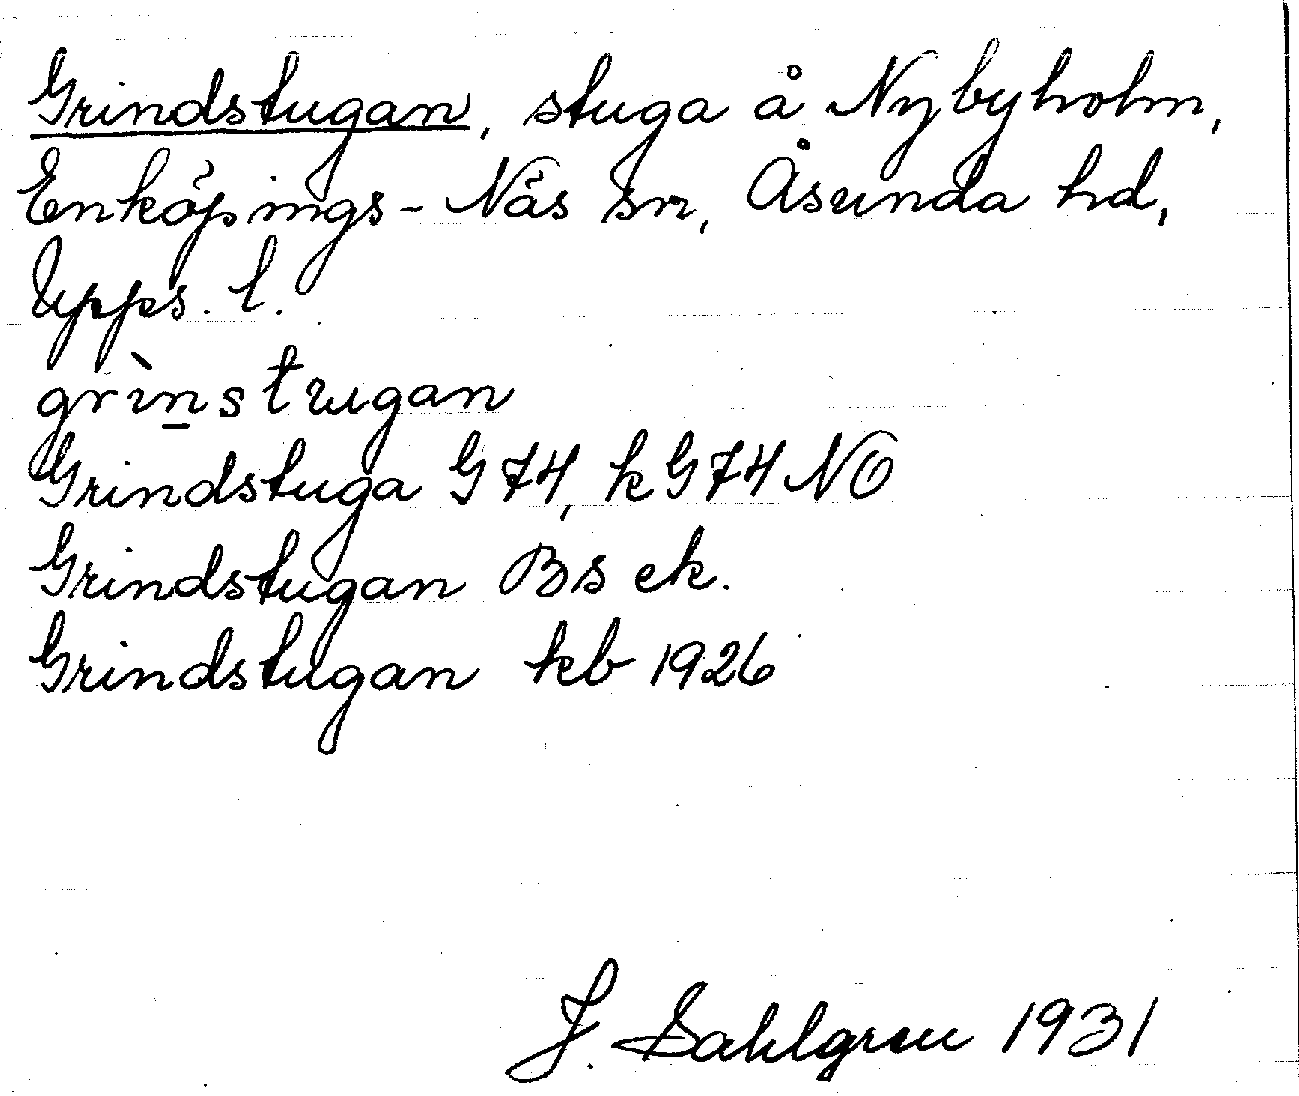 Grindstugan, stuga å Nybyholm,
Enköpings-Näs sn, Åsunda hd,
Upps. l.
grìn̲stugan
Grindstuga G 74, k G 74 NO
Grindstugan Bs ek.
Grindstugan kb 1926
J. Sahlgren 1931